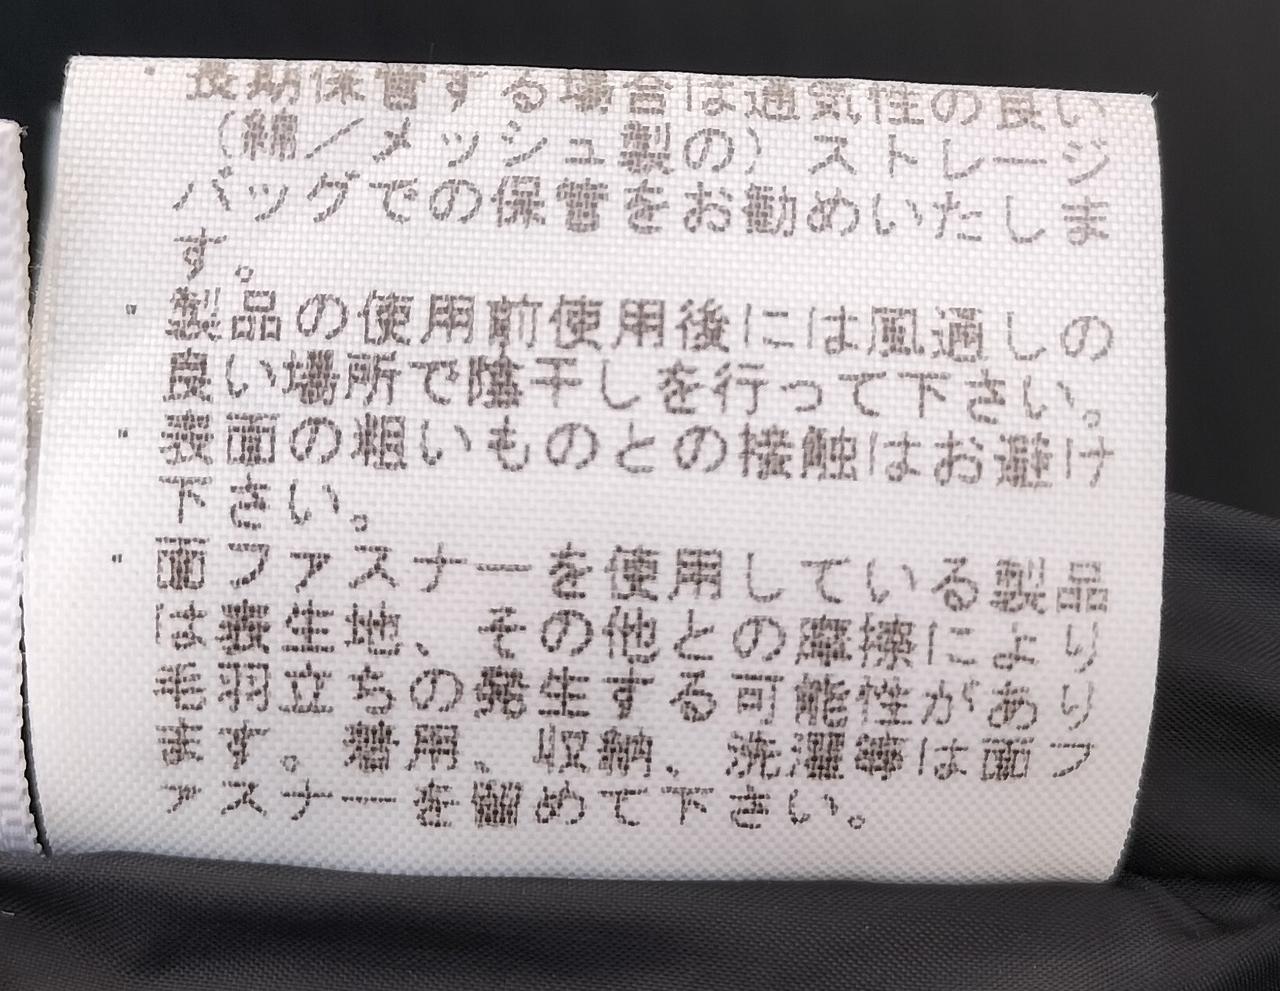 ・長期保管する場合は通気性の良い
（綿／メッシュ製の）ストレージ
バッグでの保管をお勧めいたしま
す。
・製品の使用前使用後には風通しの
良い場所で陰干しを行って下さい。
・表面の粗いものとの接触はお避け
下さい。
・面ファスナーを使用している製品
は表生地、その他との摩擦により
毛羽立ちの発生する可能性があり
ます。着用、収納、洗濯等は面フ
ァスナーを留めて下さい。